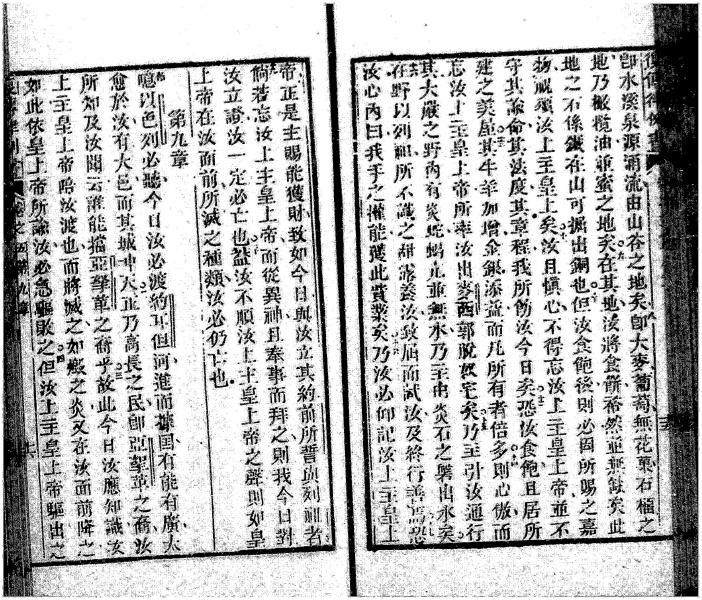 即水溪泉源湧流由山谷之地矣即大麥葡萄無花菓石榴之
地乃橄欖油並蜜之地矣在其地汝將食餅裕然並無缺矣此
地之石係鐵在山可掘出銅也但汝食飽後則必因所賜之嘉
物祝頌汝上主皇上矣汝且慎心不得忘汝上主皇上帝並不
守其諭命其法度其章程我所飭汝今日矣恐汝食飽且居所
建之美屋其牛羊加增金銀添益而凡所有者倍多則心傲而
忘汝上主皇上帝所率汝出麥西郭脫奴宅矣乃主引汝通行
其大嚴之野內有炎蛇蝎兀並無水乃主由炎石之磐出水矣
在野以列祖所不識之甜露養汝致屈而試汝及終行善
汝心內曰我手之權能獲此貨業矣乃汝必仰記汝上主皇上
帝正是主賜能獲財致如今日與汝立其約前所誓與列祖者
倘若忘汝上主皇上帝而從異神且奉事而拜之則我今日對
汝立證汝一定必亡也蓋汝不順汝上主皇上帝之聲則如皇
上帝在汝面前所滅之種類汝必仍亡也
第九章
噫以色列必聽今日汝必渡約耳但河進而據國有能有廣大
愈於汝有大邑而其城冲天正乃高長之民即亞拏革之裔汝
所知及汝聞云誰能擋亞拏革之裔乎故此今日汝應知識汝
上主皇上帝陪汝渡也而將滅之如燬之炎又在汝面前降之
如此依皇上帝所諭汝必急驅敗之但汝上主皇上帝驅出之